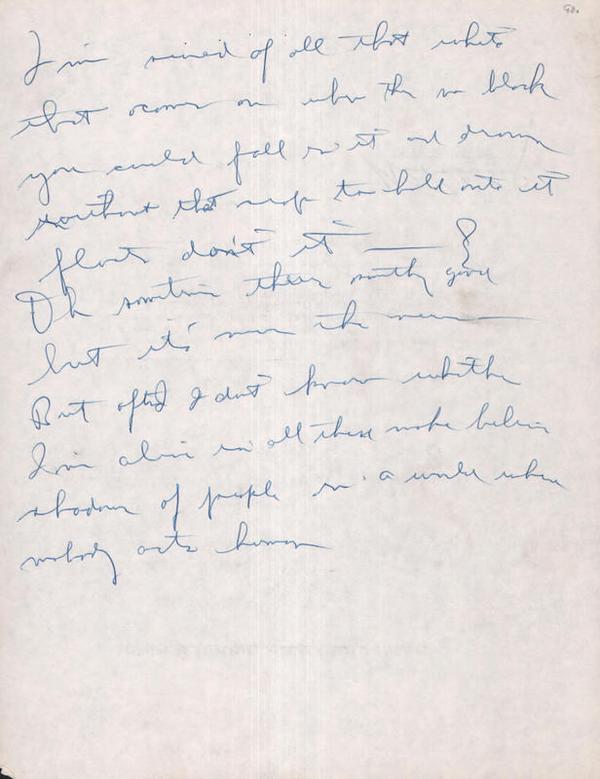 90.
I'm of all that white
that on when the in black
you could fall in it and drown
without that to hold onto it
floats don't it — ?
Oh sometimes theres good
but it's the
But often I don't know whether
I'm alive in all these make believe
shadows of people in a world where
nobody acts human